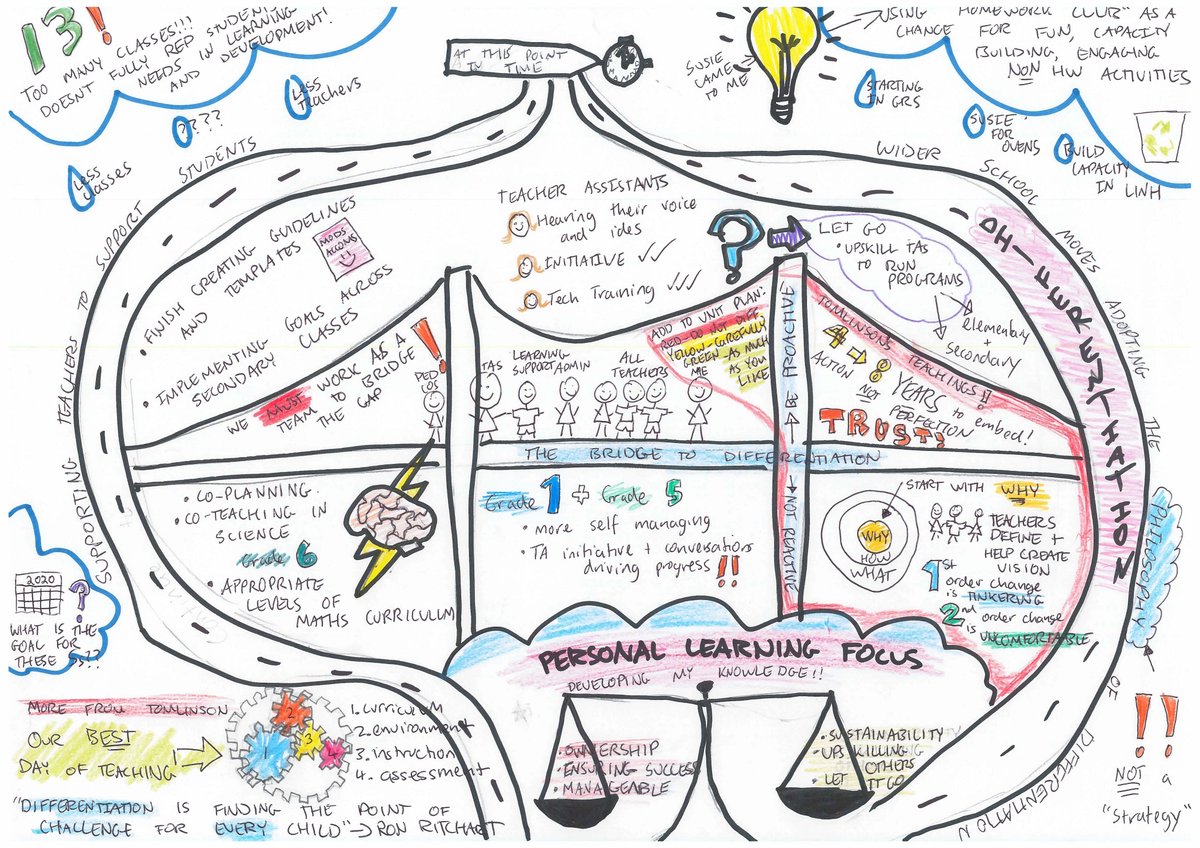 13!
TOO MANY CLASSES!!!
DOESNT FULLY REP STUDENT
NEEDS IN LEARNING
AND DEVELOPMENT!
LESS Teachers
????
LESS classes
AT THIS POINT
IN TIME
SUSIE
CAME
TO ME
USING "HOMEWORK CLUB" AS A
CHANGE FOR FUN, CAPACITY
BUILDING, ENGAGING
NON HW ACTIVITIES
STARTING
IN GR5
SUSIE
FOR
OVENS
BUILD
CAPACITY
IN LWH
SUPPORTING TEACHERS TO SUPPORT STUDENTS
WIDER SCHOOL MOVES ADOPTING THE PHILOSOPHY OF DIFFERENTIATION
!! NOT a
"strategy"
DH-IFFERENTHATHON
• FINISH CREATING GUIDELINES
AND TEMPLATES
MODS
ACCOMS
• IMPLEMENTING GOALS ACROSS
SECONDARY CLASSES
TEACHER ASSISTANTS
Hearing their voice
and ides
INITIATIVE ✓✓
Tech Training ✓✓✓
?
LET GO
• UPSKILL TAs
TO RUN
PROGRAMS
elementary
+
secondary
WE MUST WORK AS A
TEAM TO BRIDGE
THE GAP!
PED
COS
TAS
LEARNING
SUPPORT
ADMIN
ALL
TEACHERS
ME
ADD TO UNIT PLAN:
RED-DO NOT DIFF.
YELLOW-CAREFULLY
GREEN AS MUCH
AS YOU
LIKE
BE PROACTIVE
NOT REACTIVE
TOMLINSONS TEACHINGS!!
4 → 8 YEARS to embed!
ACTION NOT PERFECTION
TRUST!
THE BRIDGE TO DIFFERENTIATION
• CO-PLANNING
• CO-TEACHING IN
SCIENCE
Grade 6
• APPROPRIATE
LEVELS OF
MATHS CURRICULUM
Grade 1 + Grade 5
• more self managing
• TA initiative + conversations
driving progress !!
START WITH WHY
WHY
HOW
WHAT
TEACHERS
DEFINE +
HELP CREATE
VISION
1st
order change
is TINKERING
2nd
order change
is UNCOMFORTABLE
2020
?
WHAT IS THE
GOAL FOR
THESE Ss??
PERSONAL LEARNING FOCUS
DEVELOPING MY KNOWLEDGE!!
• OWNERSHIP
• ENSURING SUCCESS
• MANAGEABLE
• SUSTAINABILITY
• UPSKILLING
OTHERS
• LET IT GO
MORE FROM TOMLINSON
OUR BEST
DAY OF TEACHING
1
2
3
4
1. curriculum
2. environment
3. instruction
4. assessment
"DIFFERENTIATION IS FINDING THE POINT OF
CHALLENGE FOR EVERY CHILD" → RON RITCHART